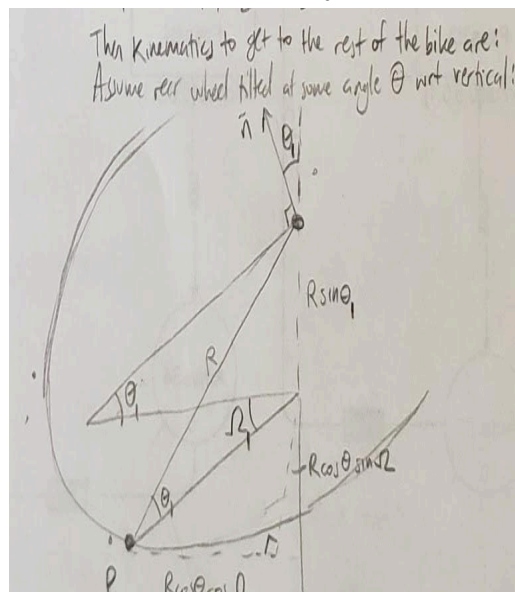 Then Kinematics to get to the rest of the bike are:
Assume rear wheel tilted at some angle θ wrt vertical:
n̄
θ₁
R sinθ₁
R
θ₁
Ω₁
Rcosθ sinΩ
θ₁
P
Rcosθ cosΩ